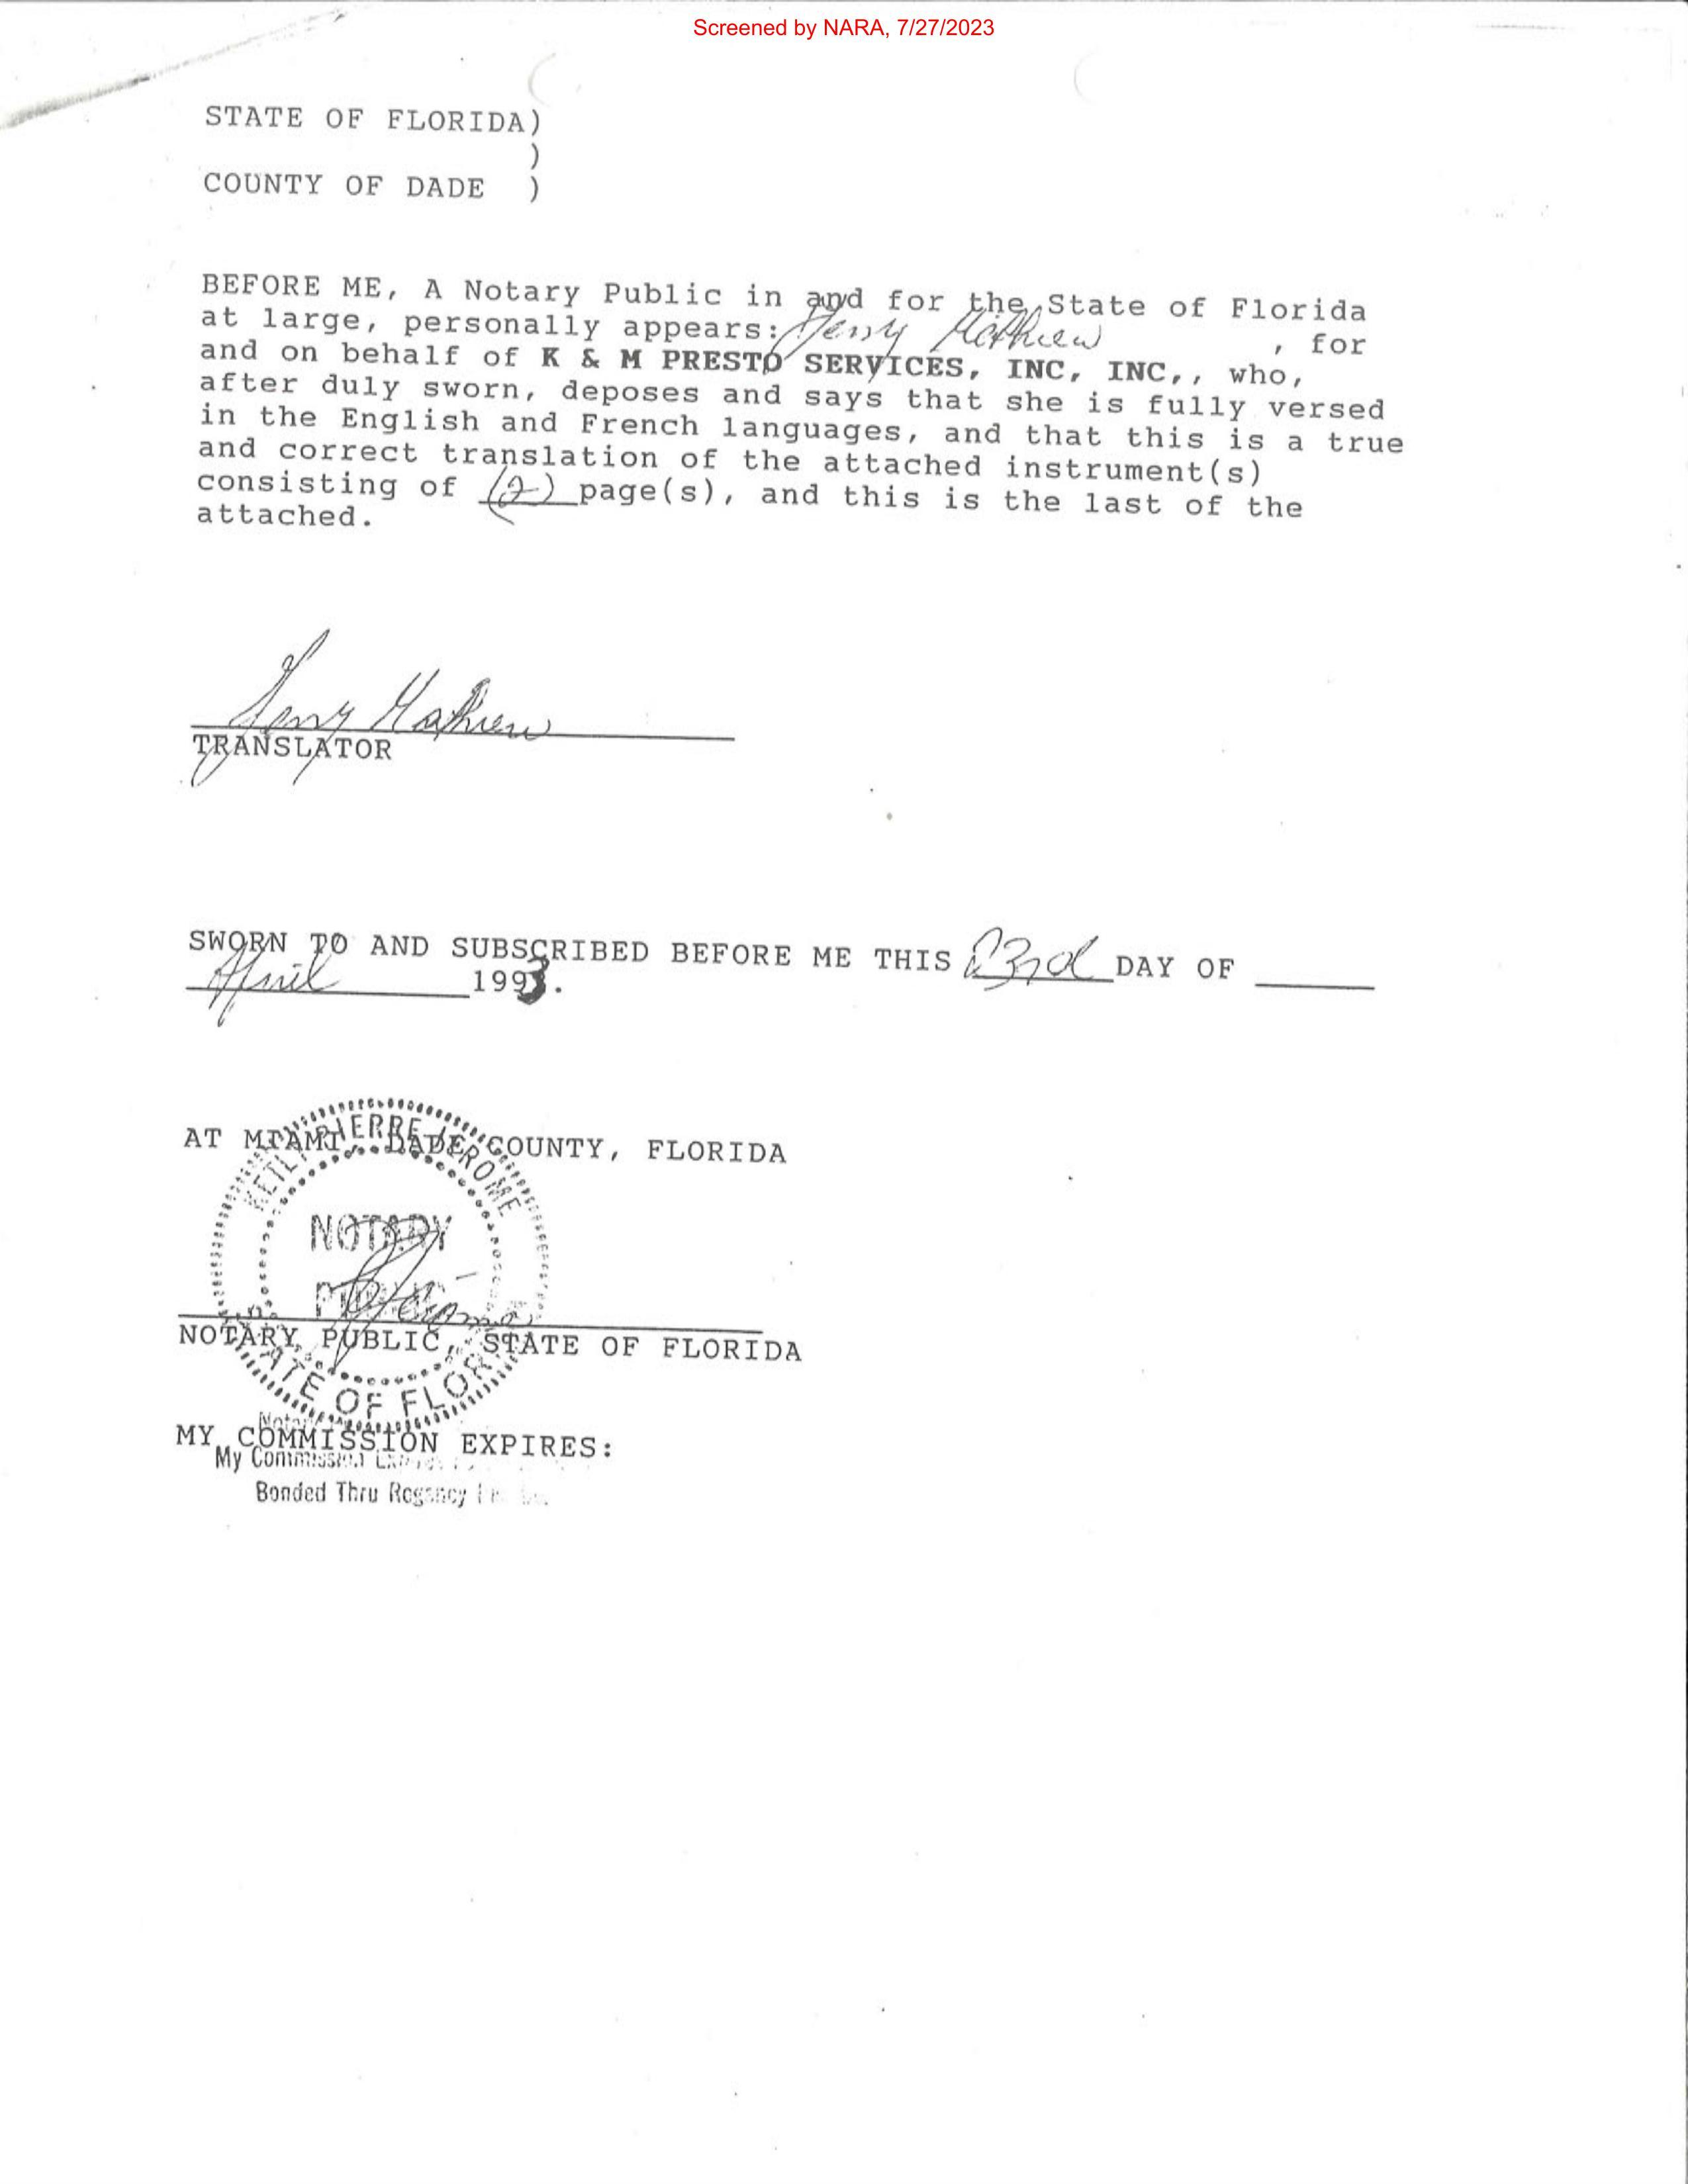 Screened by NARA, 7/27/2023
STATE OF FLORIDA)
)
COUNTY OF DADE )
BEFORE ME, A Notary Public in and for the State of Florida
at large, personally appears: Mathieu , for
and on behalf of K & M PRESTO SERVICES, INC, INC,, who,
after duly sworn, deposes and says that she is fully versed
in the English and French languages, and that this is a true
and correct translation of the attached instrument(s)
consisting of (2) page(s), and this is the last of the
attached.
Mathieu
TRANSLATOR
SWORN TO AND SUBSCRIBED BEFORE ME THIS 23rd DAY OF
April 1993.
AT MIAMI, DADE COUNTY, FLORIDA
PIERRE JEROME
NOTARY
PUBLIC
NOTARY PUBLIC, STATE OF FLORIDA
STATE OF FLOR
MY COMMISSION EXPIRES:
My Commission
Bonded Thru Regency